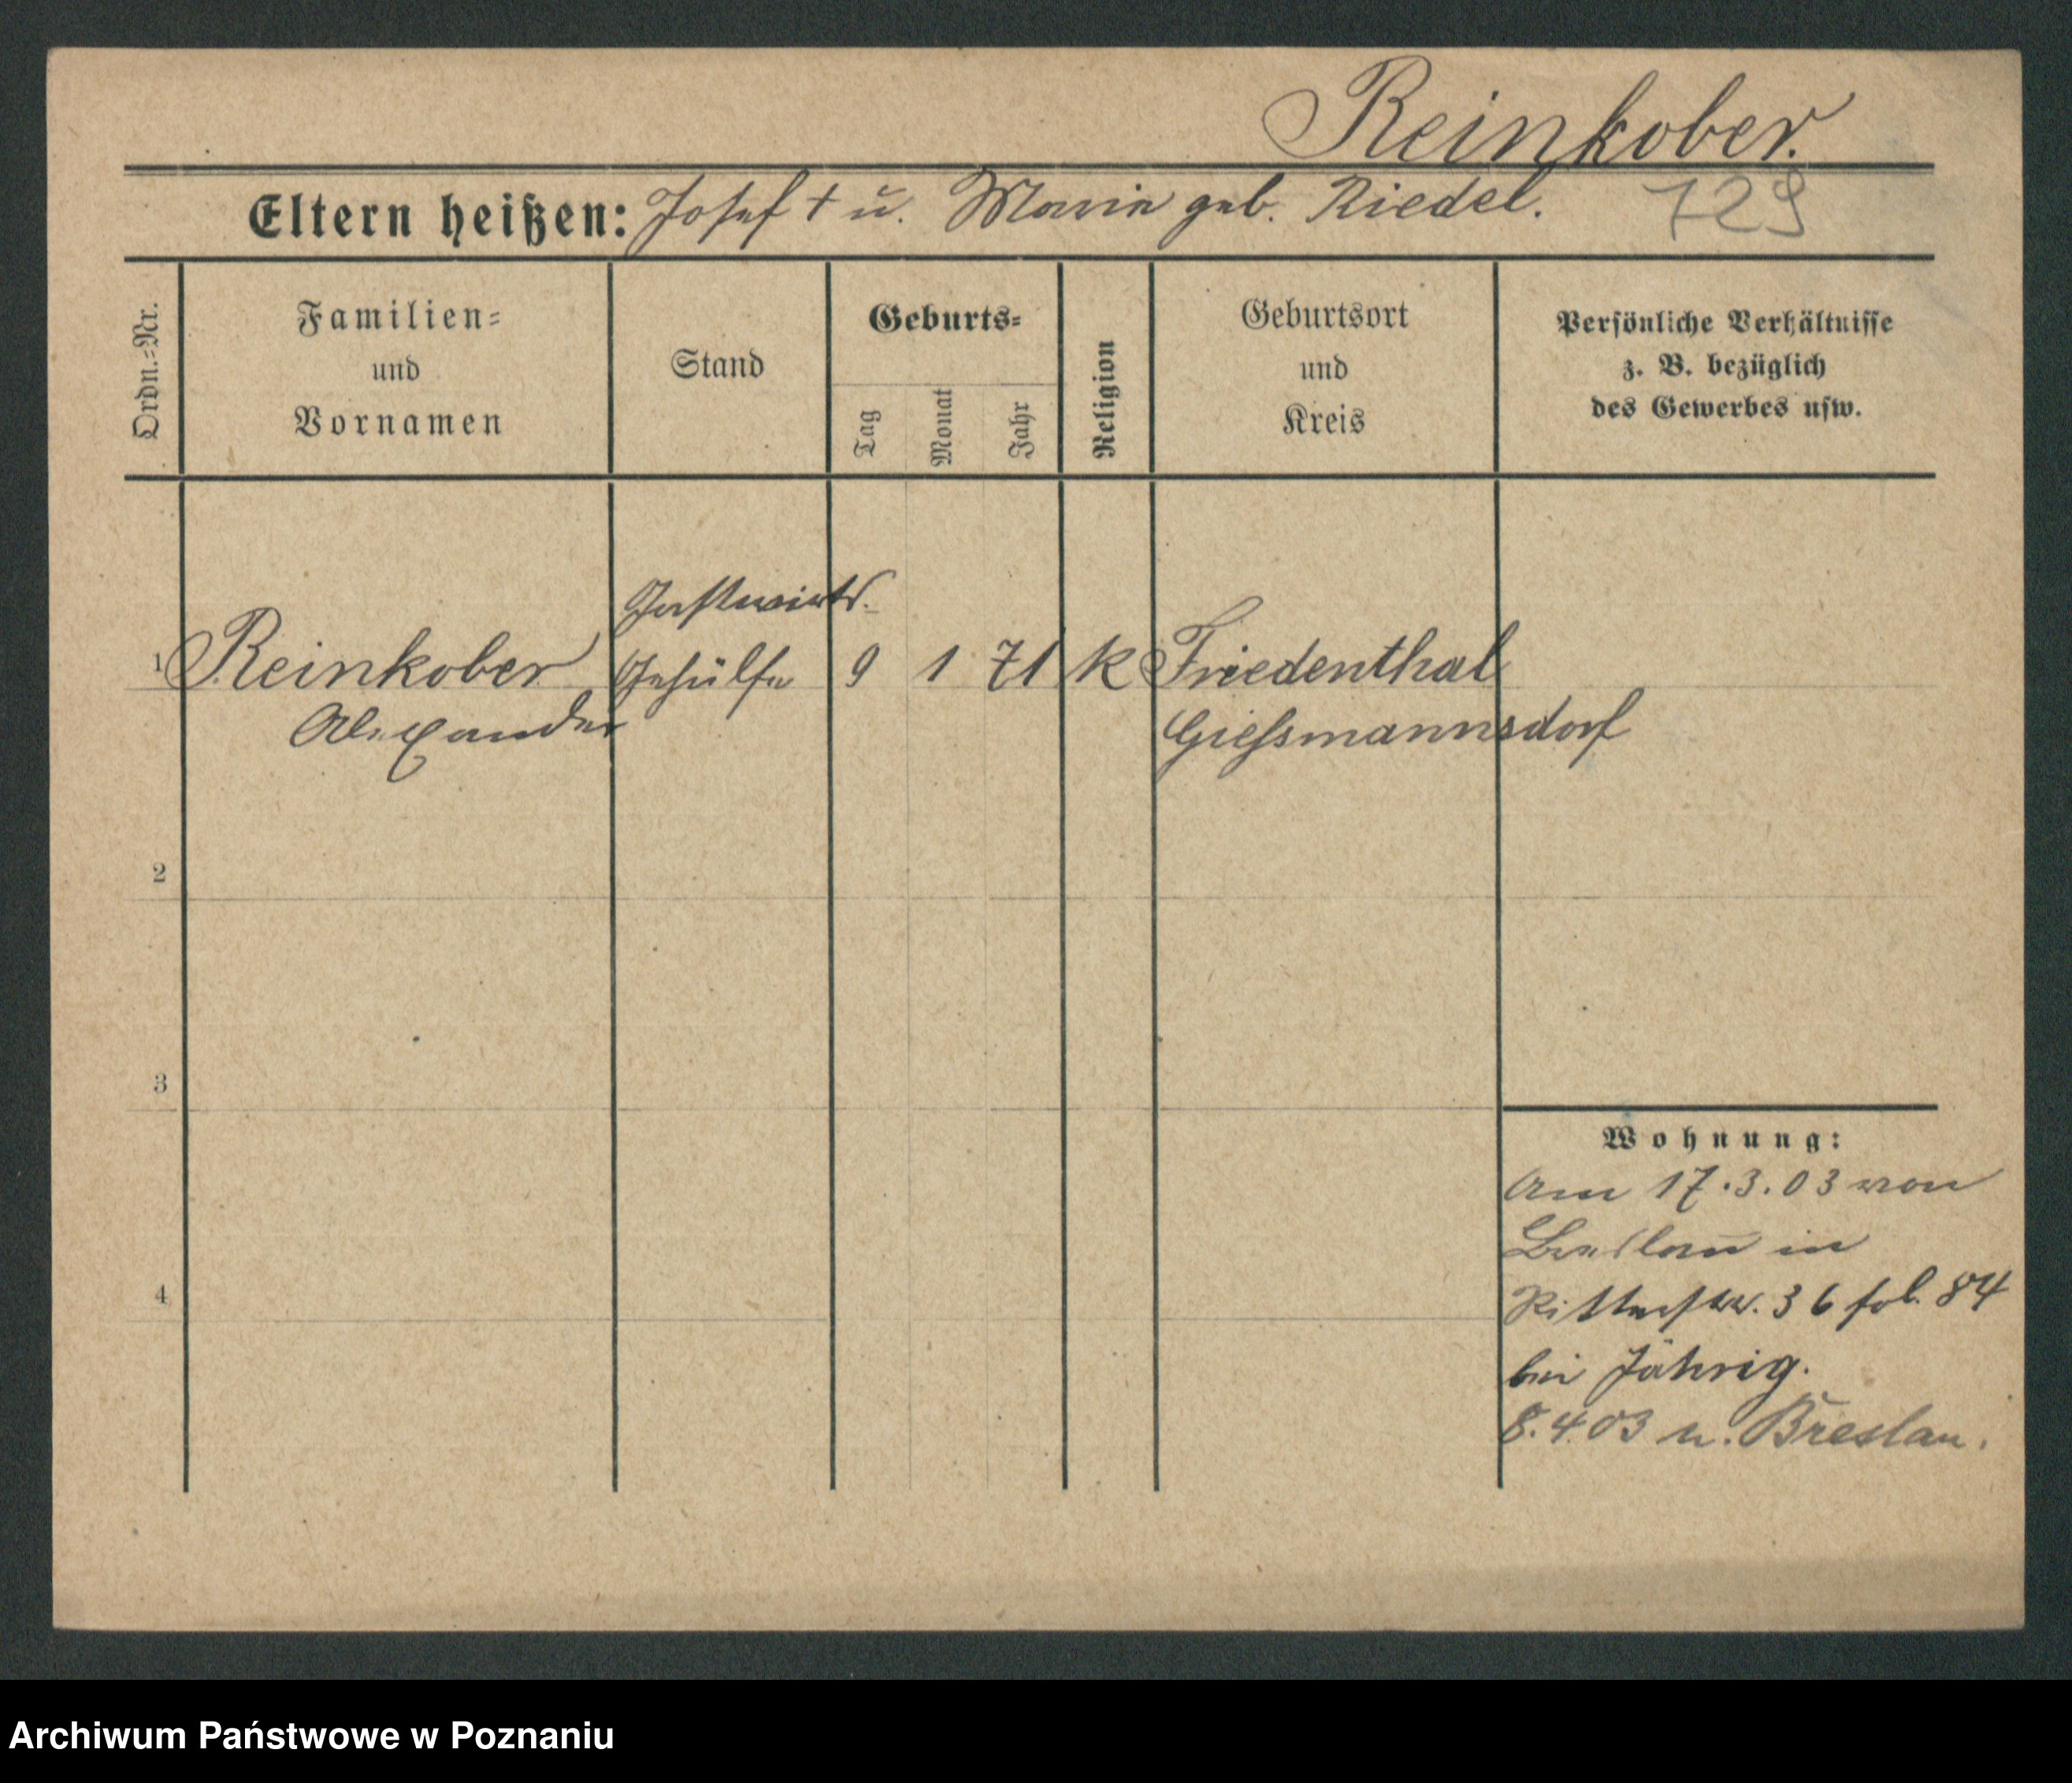 Reinkober.
Eltern heißen: Josef † u. Maria geb. Riedel. 729
Ordn.=Nr.
Familien=
und
Vornamen
Stand
Geburts=
Tag
Monat
Jahr
Religion
Geburtsort
und
Kreis
Persönliche Verhältnisse
z. B. bezüglich
des Gewerbes usw.
Gastwirts.
1 Reinkober Gehülfe 9 1 71 k Friedenthal
Alexander Giessmannsdorf
2
3
4
Wohnung:
Am 17.3.03 von
Breslau in
Ritterstr. 36 fol. 84
bei Jährig.
8.4.03 n. Breslau.
Archiwum Państwowe w Poznaniu